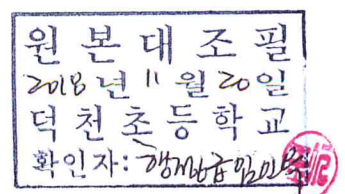 원본대조필
2018년 11월 20일
덕천초등학교
확인자: